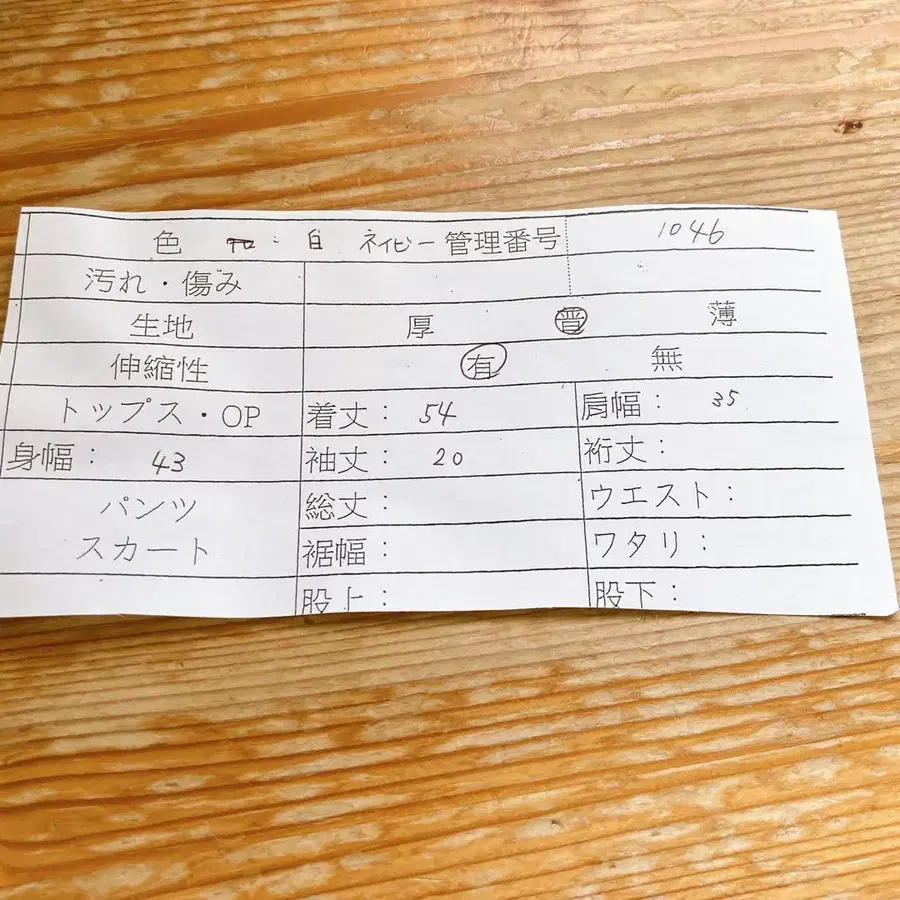 色 白 ネイビー 管理番号 1046
汚れ・傷み
生地 厚 普 薄
伸縮性 有 無
トップス・OP 着丈: 54 肩幅: 35
身幅: 43 袖丈: 20 裄丈:
パンツ 総丈: ウエスト:
スカート 裾幅: ワタリ:
股上: 股下: